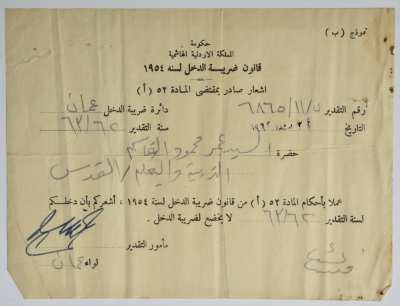 نموذج (ب)
حكومة
المملكة الاردنية الهاشمية
قانون ضريبة الدخل لسنة ١٩٥٤
اشعار صادر بمقتضى المادة ٥٢ (أ)
رقم التقدير ٦٨٦٥/١١/ دائرة ضريبة الدخل عمان
التاريخ سنة التقدير ٦٣/٦٢
حضرة السيد عمر محمود القاسم
التربية والتعليم / القدس
عملا بأحكام المادة ٥٢ (أ) من قانون ضريبة الدخل لسنة ١٩٥٤ ، أشعركم بأن دخلكم
لسنة التقدير ٦٣/٦٢ لا يخضع لضريبة الدخل .
مأمور التقدير
لواء عمان